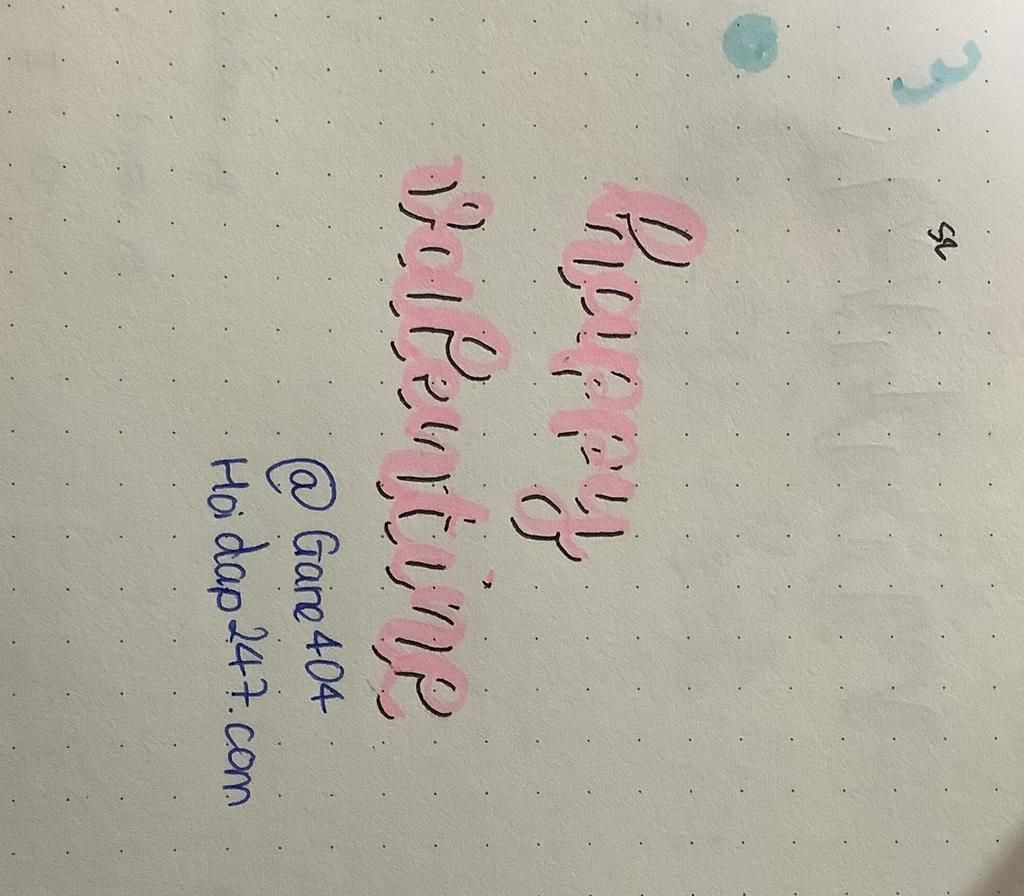 happy
valentine
@ Gane404
Hoidap247.com